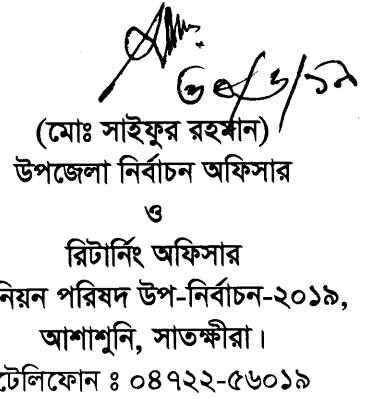 (মোঃ সাইফুর রহমান)
উপজেলা নির্বাচন অফিসার
ও
রিটার্নিং অফিসার
নিয়ন পরিষদ উপ-নির্বাচন-২০১৯,
আশাশুনি, সাতক্ষীরা।
টেলিফোন ঃ ০৪৭২২-৫৬০১৯